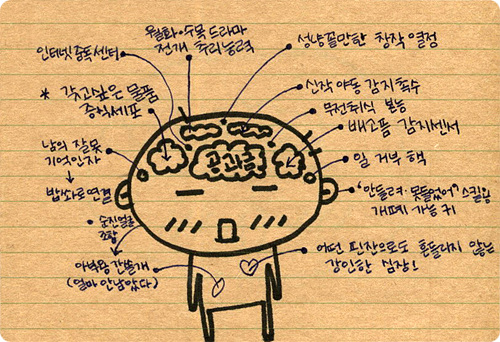 월화·수목 드라마
전개 추리능력
인터넷중독센터
성냥꼴만한 창작 열정
* 갖고싶은 물품
증식세포
신작 야동 감지촉수
무전취식 본능
배고픔 감지센서
남의 잘못
기억인자
공과금
일 거부 핵
밥솥으로연결
"안들려·못들었어" 스킬용
개폐시 가능 귀
순진얼굴
조합
어떤 핀잔으로도 흔들리지 않는
강인한 심장!
아부용 간쓸개
(얼마 안남았다)